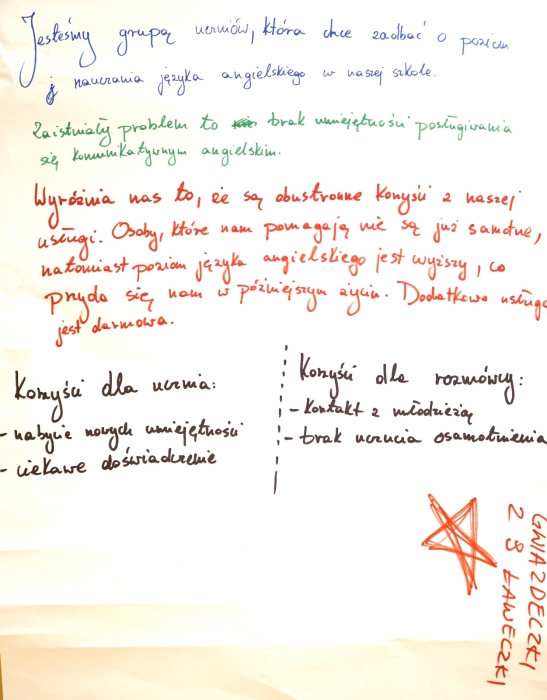 Jesteśmy grupą uczniów, która chce zadbać o poziom
nauczania języka angielskiego w naszej szkole.
Zaistniały problem to brak umiejętności posługiwania
się komunikatywnym angielskim.
Wyróżnia nas to, że są obustronne korzyści z naszej
usługi. Osoby, które nam pomagają nie są już samotne,
natomiast poziom języka angielskiego jest wyższy, co
przyda się nam w późniejszym życiu. Dodatkowo usługa
jest darmowa.
Korzyści dla ucznia:
- nabycie nowych umiejętności
- ciekawe doświadczenie
Korzyści dla rozmówcy:
- kontakt z młodzieżą
- brak uczucia osamotnienia
GWIAZDECZKI
Z 8 ŁAWECZKI